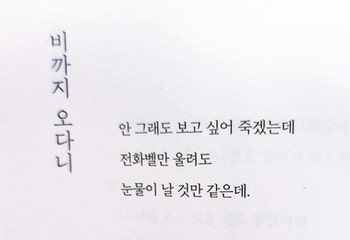 비까지 오다니
안 그래도 보고 싶어 죽겠는데
전화벨만 울려도
눈물이 날 것만 같은데.